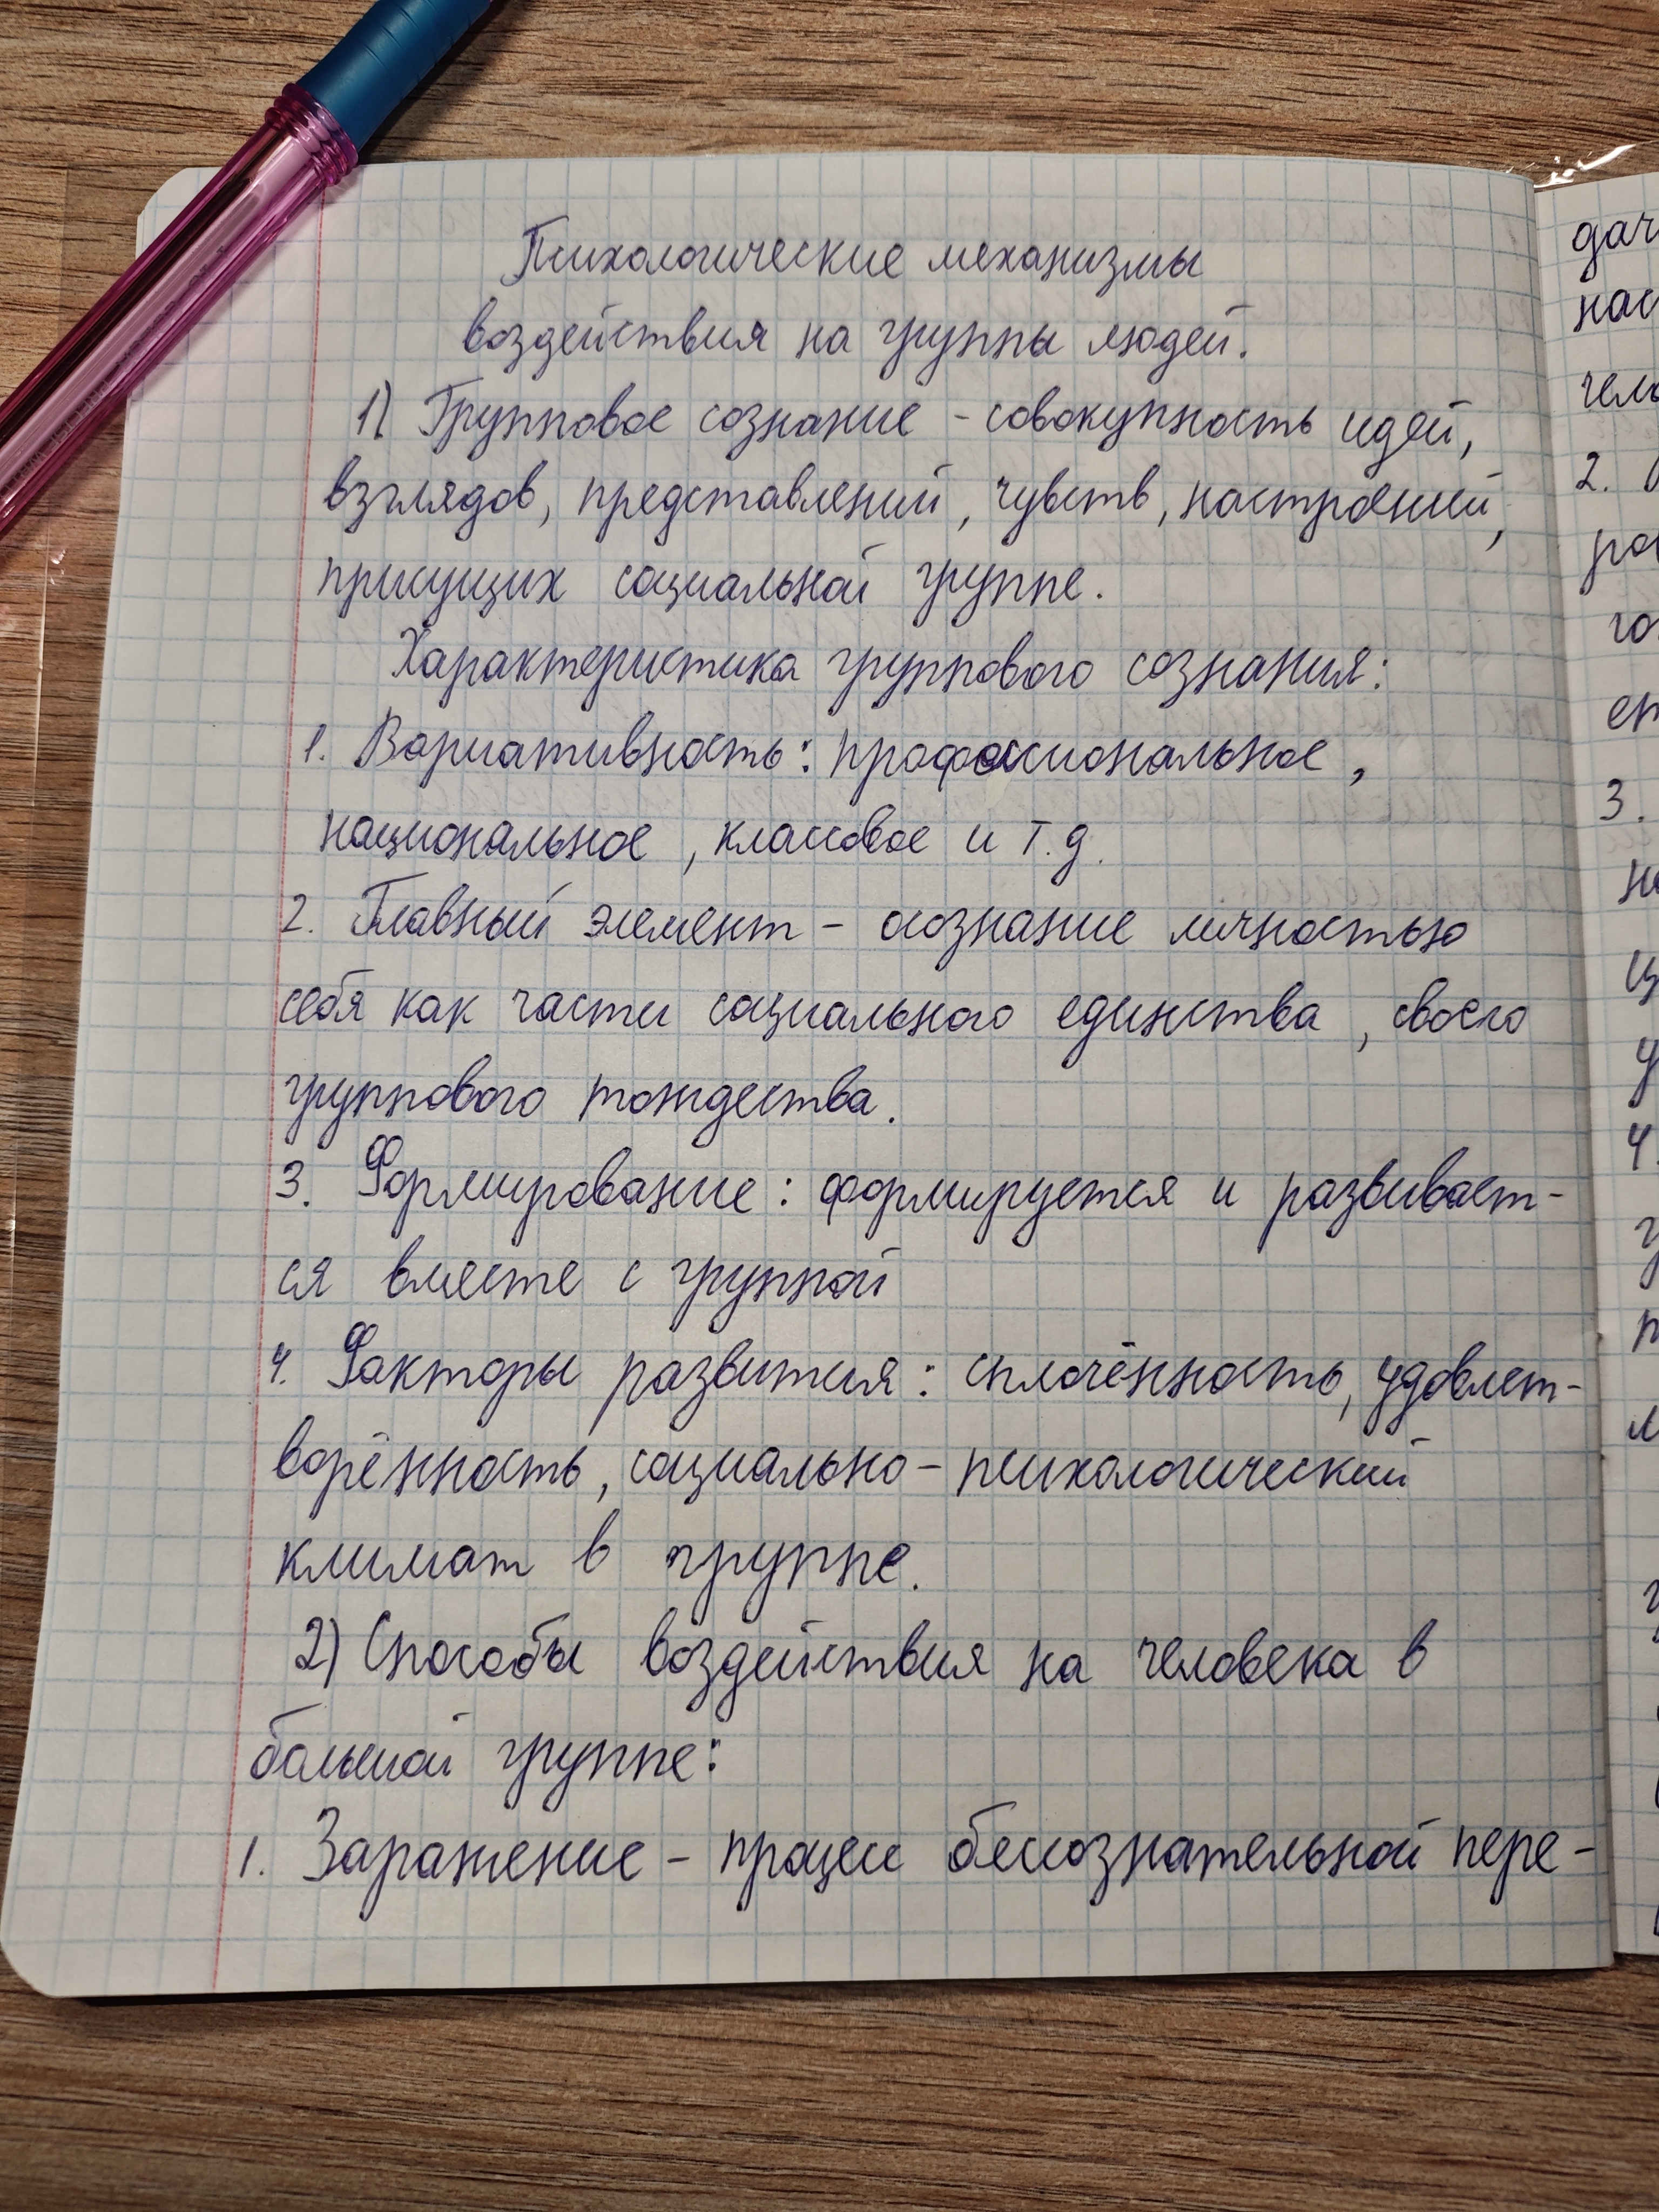 Психологические механизмы
воздействия на группы людей.
1) Групповое сознание - совокупность идей,
взглядов, представлений, чувств, настроений,
присущих социальной группе.
Характеристика группового сознания:
1. Вариативность: профессиональное,
национальное, классовое и т.д.
2. Главный элемент - осознание личностью
себя как части социального единства, своего
группового тождества.
3. Формирование: формируется и развивает-
ся вместе с группой
4. Факторы развития: сплочённость, удовлет-
ворённость, социально-психологический
климат в группе.
2) Способы воздействия на человека в
большой группе:
1. Заражение - процесс бессознательной пере-
2.
3.
4.